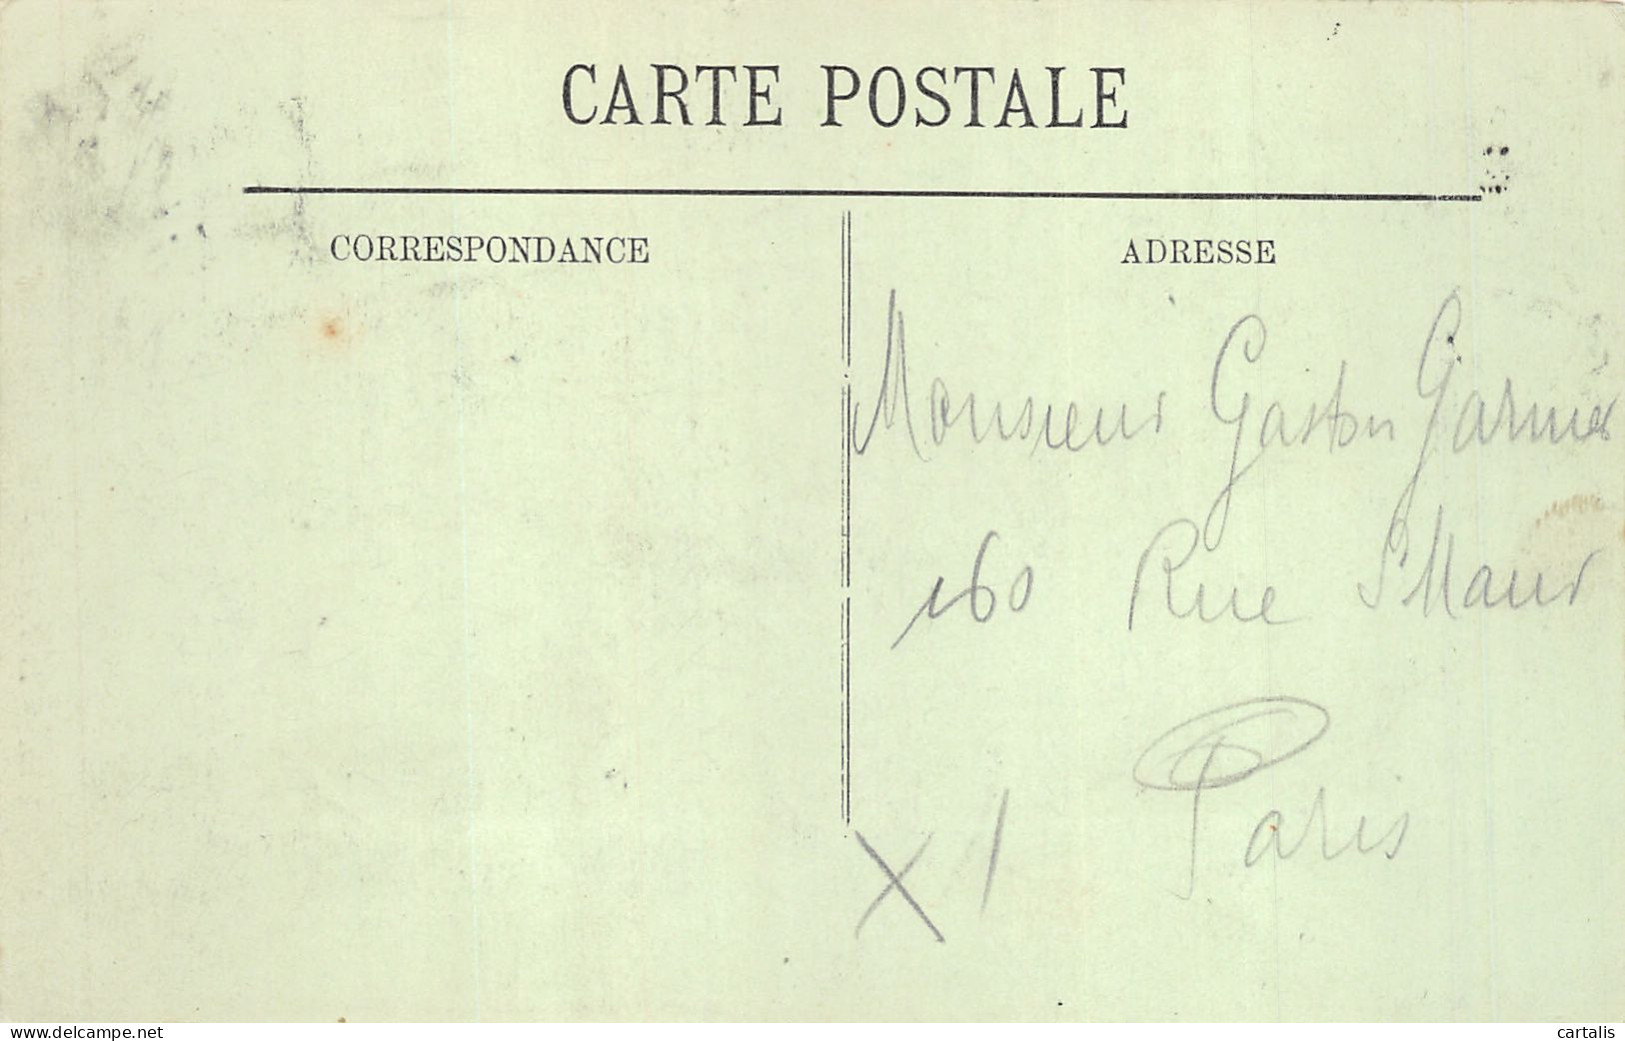 CARTE POSTALE
CORRESPONDANCE
ADRESSE
Monsieur Gaston Garnier
160 Rue St Maur
Paris
XI
www.delcampe.net
cartalis